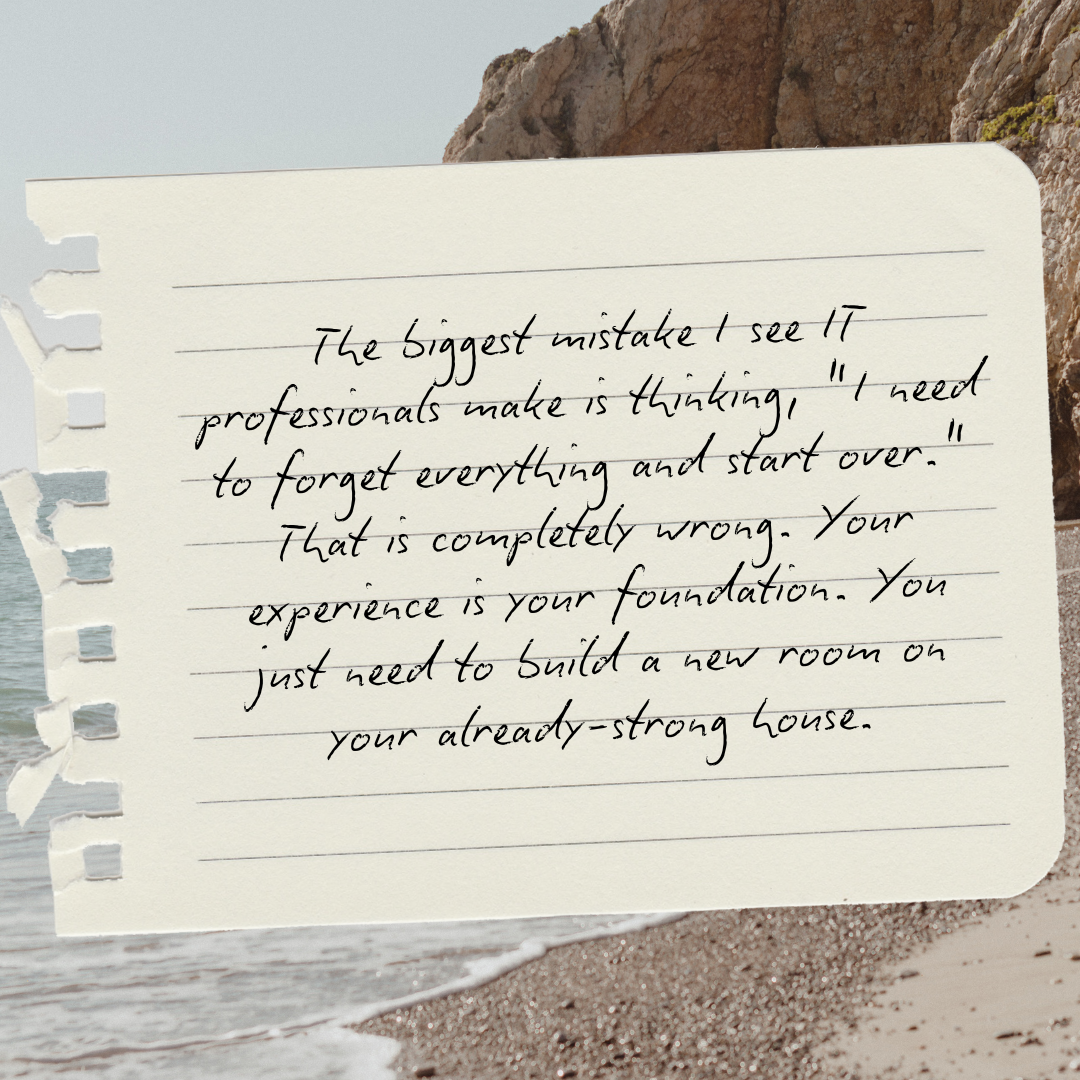 The biggest mistake I see IT
professionals make is thinking, "I need
to forget everything and start over."
That is completely wrong. Your
experience is your foundation. You
just need to build a new room on
your already-strong house.